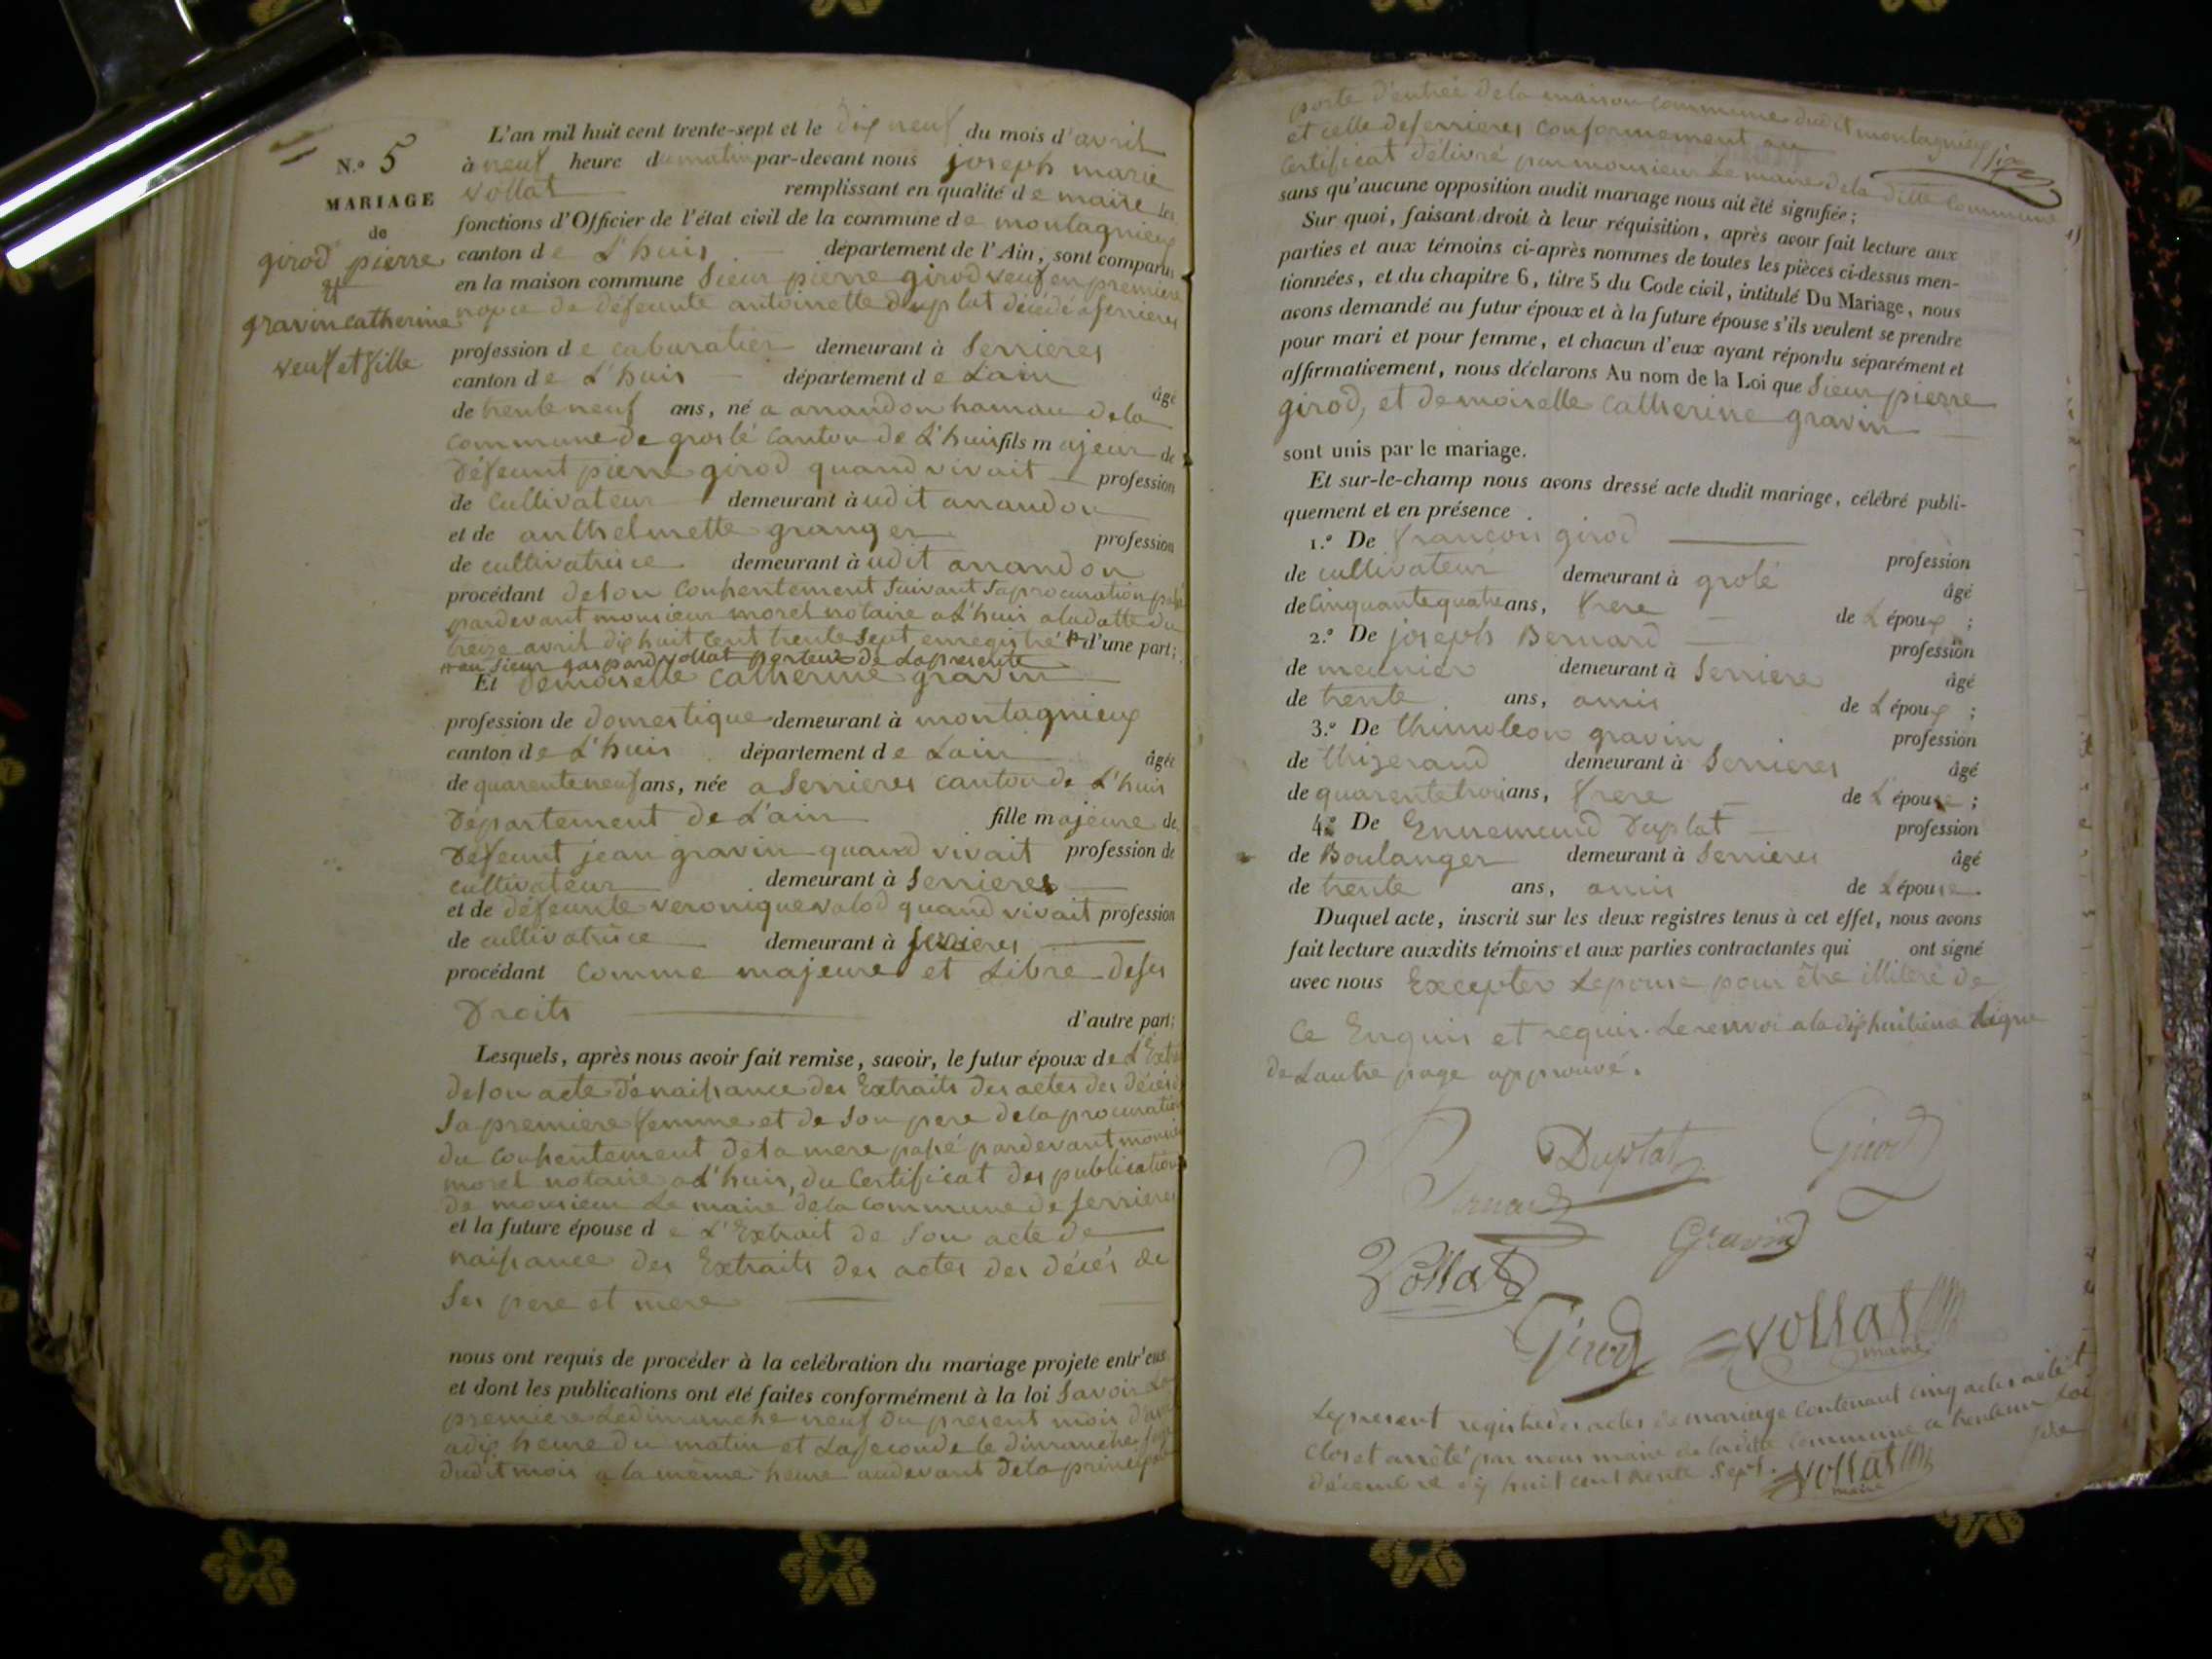 N.º 5
MARIAGE
de
girod pierre
et
gravin catherine
veuf et fille
L'an mil huit cent trente-sept et le dix neuf du mois d'avril
à neuf heure du matin par-devant nous joseph marie
vollat remplissant en qualité de maire les
fonctions d'Officier de l'état civil de la commune de montagnieux
canton de L'huis département de l'Ain, sont comparus
en la maison commune Sieur pierre girod veuf en premiere
nopce de défeunte antoinette duplat décédé a serrieres
profession de cabaratier demeurant à Serrieres
canton de L'huis département de Lain âgé
de trente neuf ans, né a arrandon hamau dela
commune de groslé canton de L'huis fils majeur de
défeunt pierre girod quand vivait profession
de cultivateur demeurant à udit arrandon
et de anthelmette granger profession
de cultivatrice demeurant à udit arrandon
procédant deson consentement suivant saprocuration passé
pardevant monsieur morel notaire a L'huis aladatte du
treize avril dix huit cent trente sept enregistré d'une part;
au sieur gaspard vollat porteur de Lapresente
Et demoiselle catherine gravin
profession de domestique demeurant à montagnieux
canton de L'huis département de Lain âgée
de quarente neuf ans, née a Serrieres canton de L'huis
département de L'ain fille majeure de
défeunt jean gravin quand vivait profession de
cultivateur demeurant à Serrieres
et de défeunte veronique valod quand vivait profession
de cultivatrice demeurant à serrieres
procédant comme majeure et Libre deses
droits d'autre part;
Lesquels, après nous avoir fait remise, savoir, le futur époux de L'Extrait
deson acte denaissance des Extraits des actes des décès de
sa premiere femme et de son pere dela procuration
du consentement desa mere passé pardevant monsieur
morel notaire a L'huis, du Certificat des publications
de monsieur Le maire dela commune de serrieres
et la future épouse de L'Extrait de son acte de
naissance des Extraits des actes des décés de
ses pere et mere
nous ont requis de procéder à la celébration du mariage projeté entr'eux
et dont les publications ont été faites conformément à la loi savoir La
premiere Ledimanche neuf du present mois d'avril
adix heure du matin et Laseconde le dimanche seize
dudit mois a la même heure audevant dela principale
porte d'entrée dela maison commune dudit montagnieux
et celle deserrieres conformement au
Certificat délivré par monsieur Le maire dela ditte commune
sans qu'aucune opposition audit mariage nous ait été signifiée;
Sur quoi, faisant droit à leur réquisition, après avoir fait lecture aux
parties et aux témoins ci-après nommes de toutes les pièces ci-dessus men-
tionnées, et du chapitre 6, titre 5 du Code civil, intitulé Du Mariage, nous
avons demandé au futur époux et à la future épouse s'ils veulent se prendre
pour mari et pour femme, et chacun d'eux ayant répondu séparément et
affirmativement, nous déclarons Au nom de la Loi que Sieur pierre
girod, et demoiselle catherine gravin
sont unis par le mariage.
Et sur-le-champ nous avons dressé acte dudit mariage, célébré publi-
quement et en présence
1.º De françois girod profession
de cultivateur demeurant à grolé âgé
de cinquante quatre ans, frere de L'époux;
2.º De joseph Bernard profession
de meunier demeurant à Serriere âgé
de trente ans, amis de L'époux;
3.º De thimoleon gravin profession
de thizerand demeurant à Serrieres âgé
de quarente trois ans, frere de L'épouse;
4.º De Ennemund duplat profession
de Boulanger demeurant à Serrieres âgé
de trente ans, amis de L'épouse.
Duquel acte, inscrit sur les deux registres tenus à cet effet, nous avons
fait lecture auxdits témoins et aux parties contractantes qui ont signé
avec nous Excepter Lepouse pour être illiteré de
ce Enquis et requis. Le renvoi ala dix huitieme Ligne
de Lautre page approuvé.
Bernard Duplat Girod
Gravin
Vollat
Girod Vollat
maire
Lepresent registre des actes de mariage contenant cinq actes aété
clos et arrêté par nous maire de ladite commune ce trente un
décembre dix huit cent trente sept. Vollat
maire